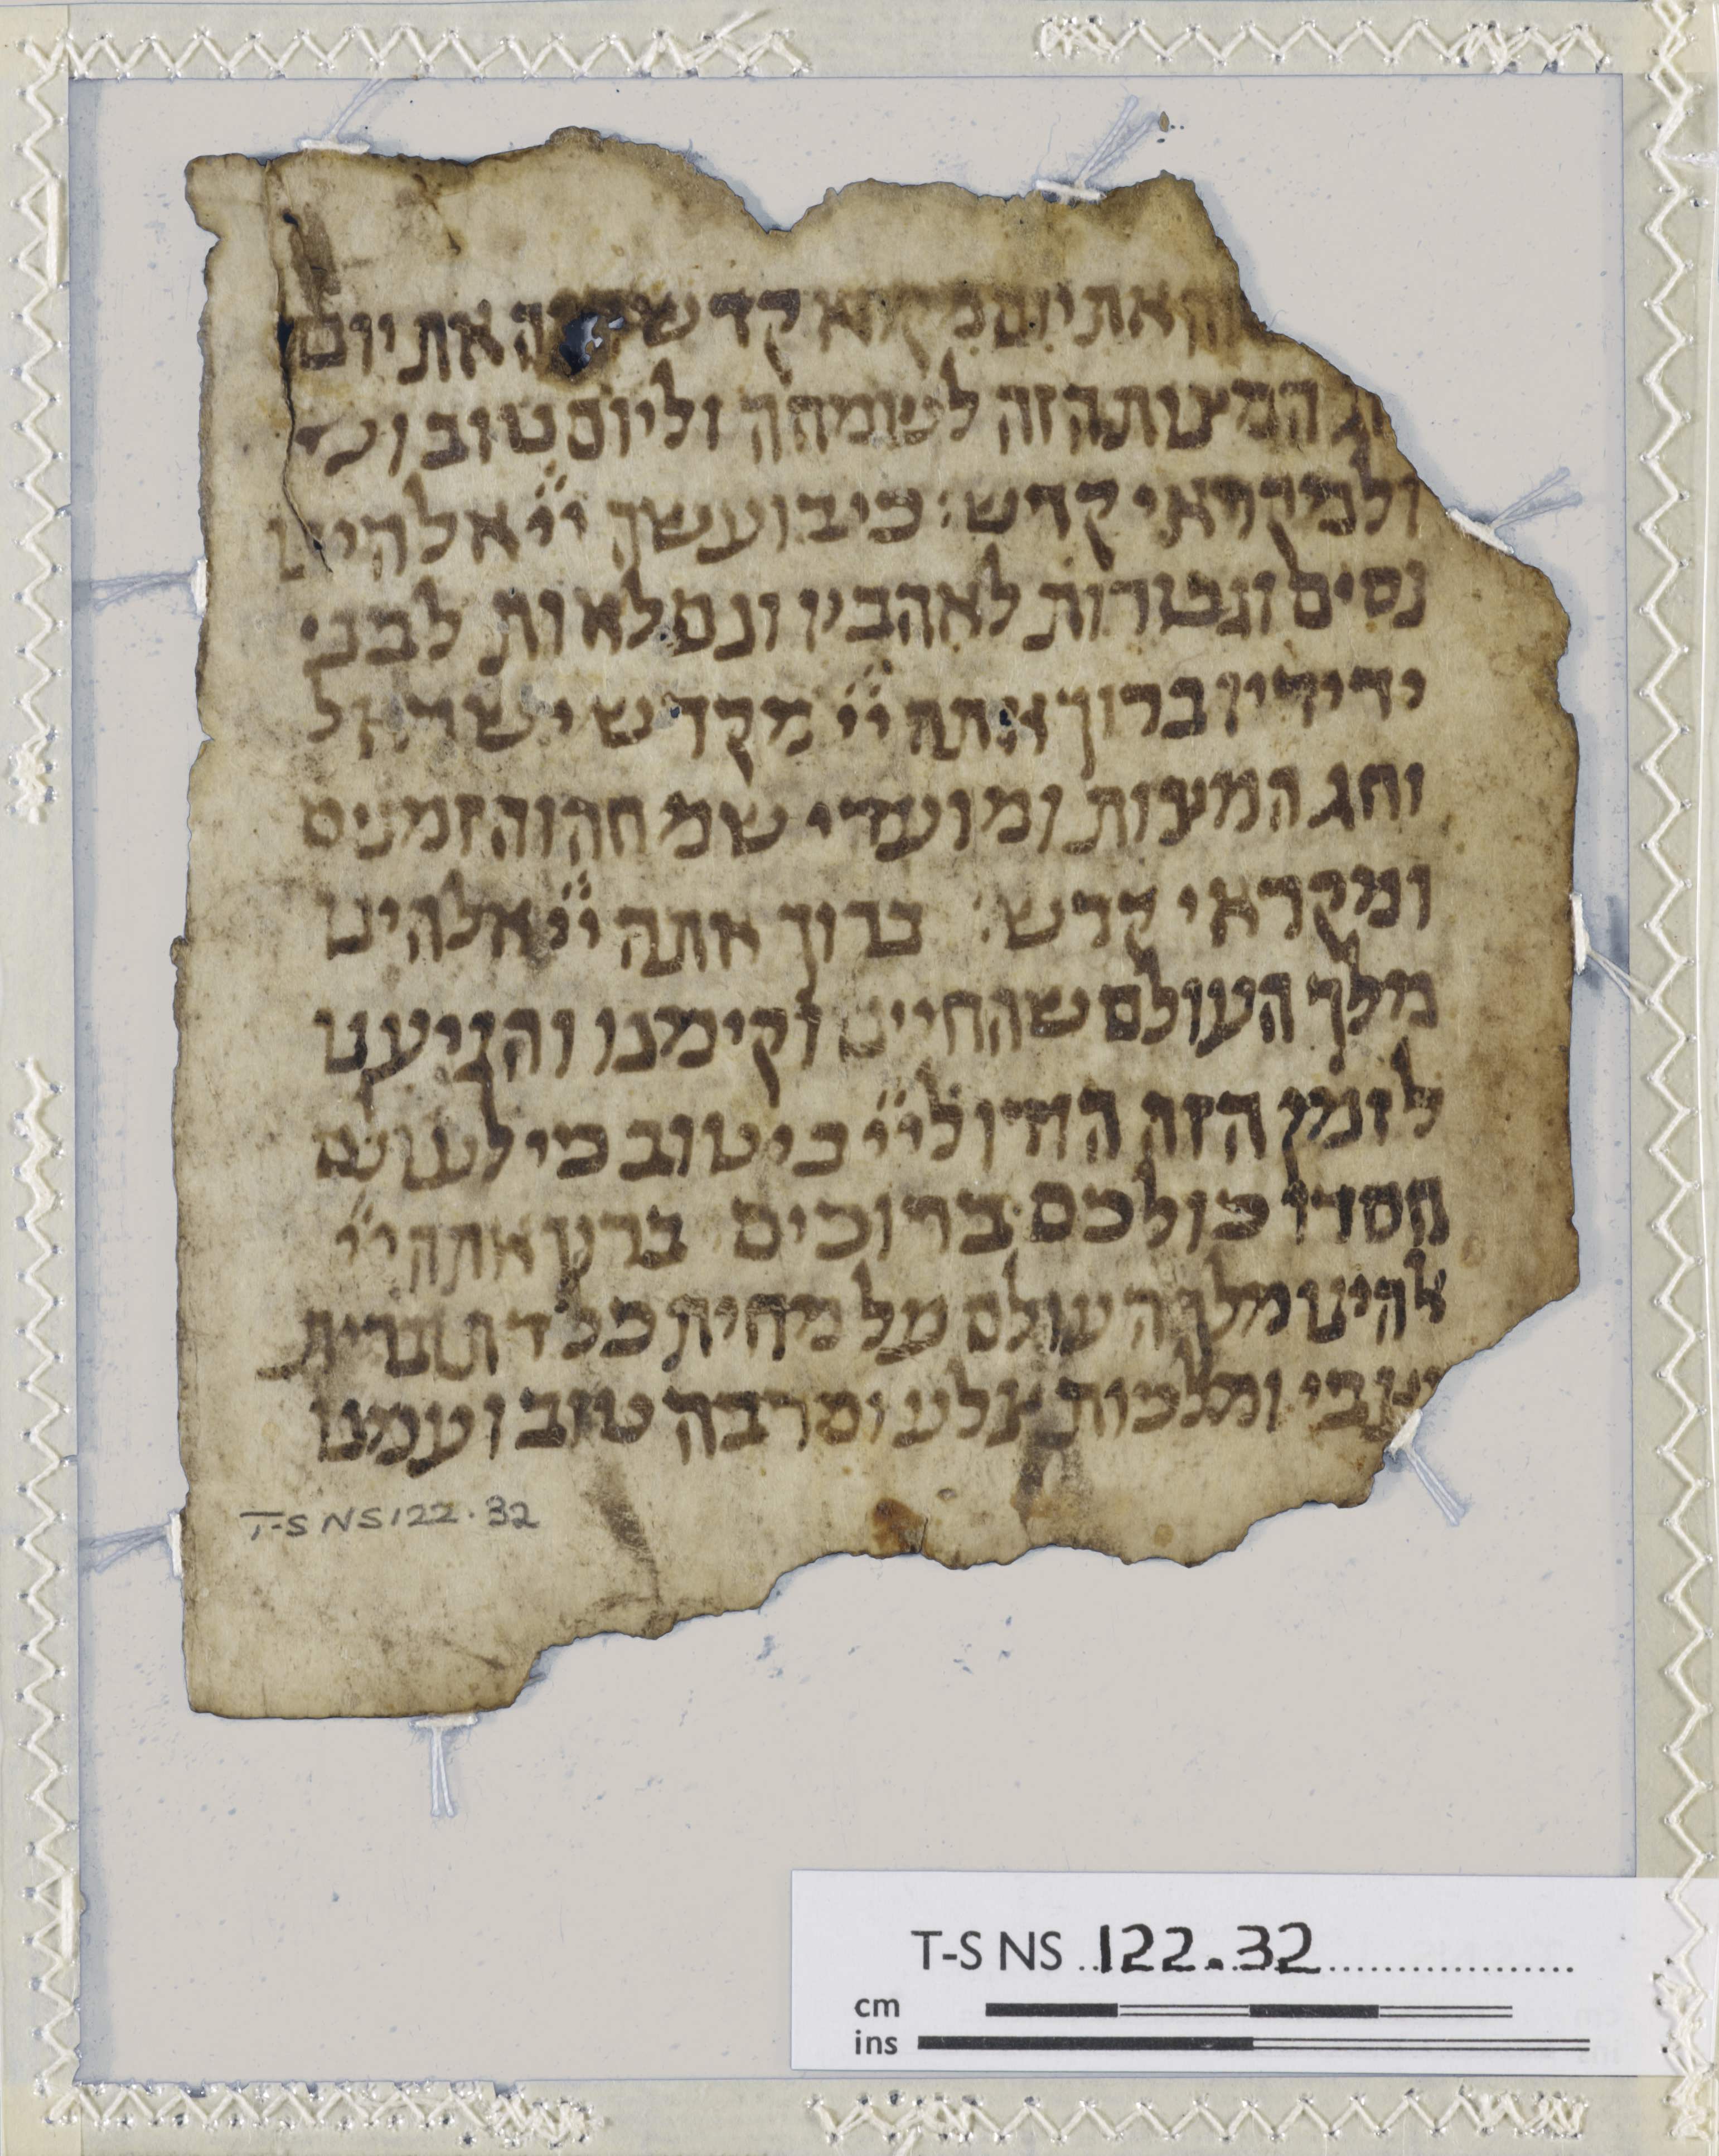 את יום מקרא קדש הזה את יום
חג המצות הזה לשמחה וליום טוב
ולמקראי קדש: כי בו עשה ייי אלהינו
נסים וגבורות לאהביו ונפלאות לבני
ידידיו ברוך אתה ייי מקדש ישראל
וחג המצות ומועדי שמחה והזמנים
ומקראי קדש: ברוך אתה ייי אלהינו
מלך העולם שהחיינו וקימנו והגיענו
לזמן הזה הודו לייי כי טוב כי לעולם
חסדו כולכם ברוכים ברוך אתה ייי
אלהינו מלך העולם על מחית כלכלת
ומלכות ומרבה טוב ועמנו
T-S NS 122.32
T-S NS 122.32
cm
ins